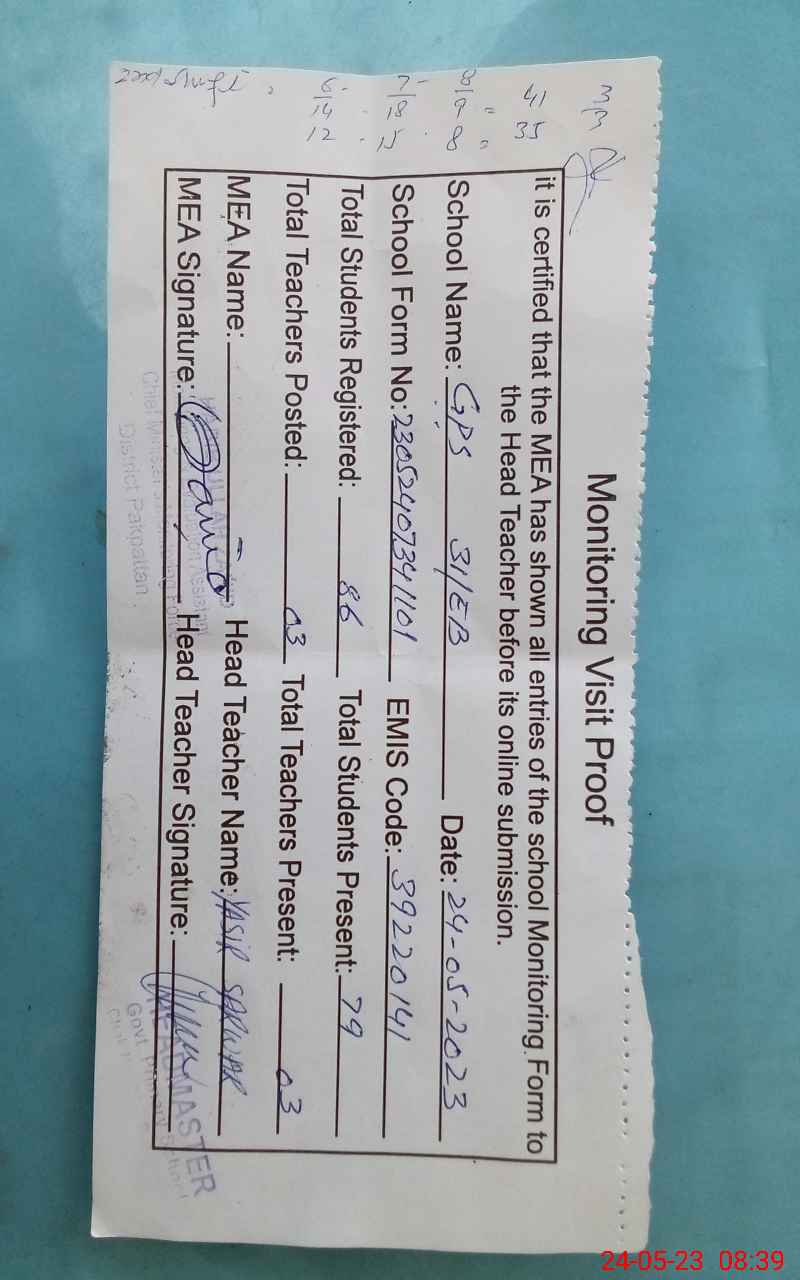 Monitoring Visit Proof
it is certified that the MEA has shown all entries of the school Monitoring Form to
the Head Teacher before its online submission.
School Name: GPS 31/EB Date: 24-05-2023
School Form No: 23052407341101 EMIS Code: 39220141
Total Students Registered: 86 Total Students Present: 79
Total Teachers Posted: 03 Total Teachers Present: 03
MEA Name: Head Teacher Name: YASIR SARWAR
MEA Signature: Head Teacher Signature:
HEADMASTER
Govt. Primary School
Chief Minister's Monitoring Force
District Pakpattan
41 35
8/9 8
7/18 15
6/14 12
24-05-23 08:39